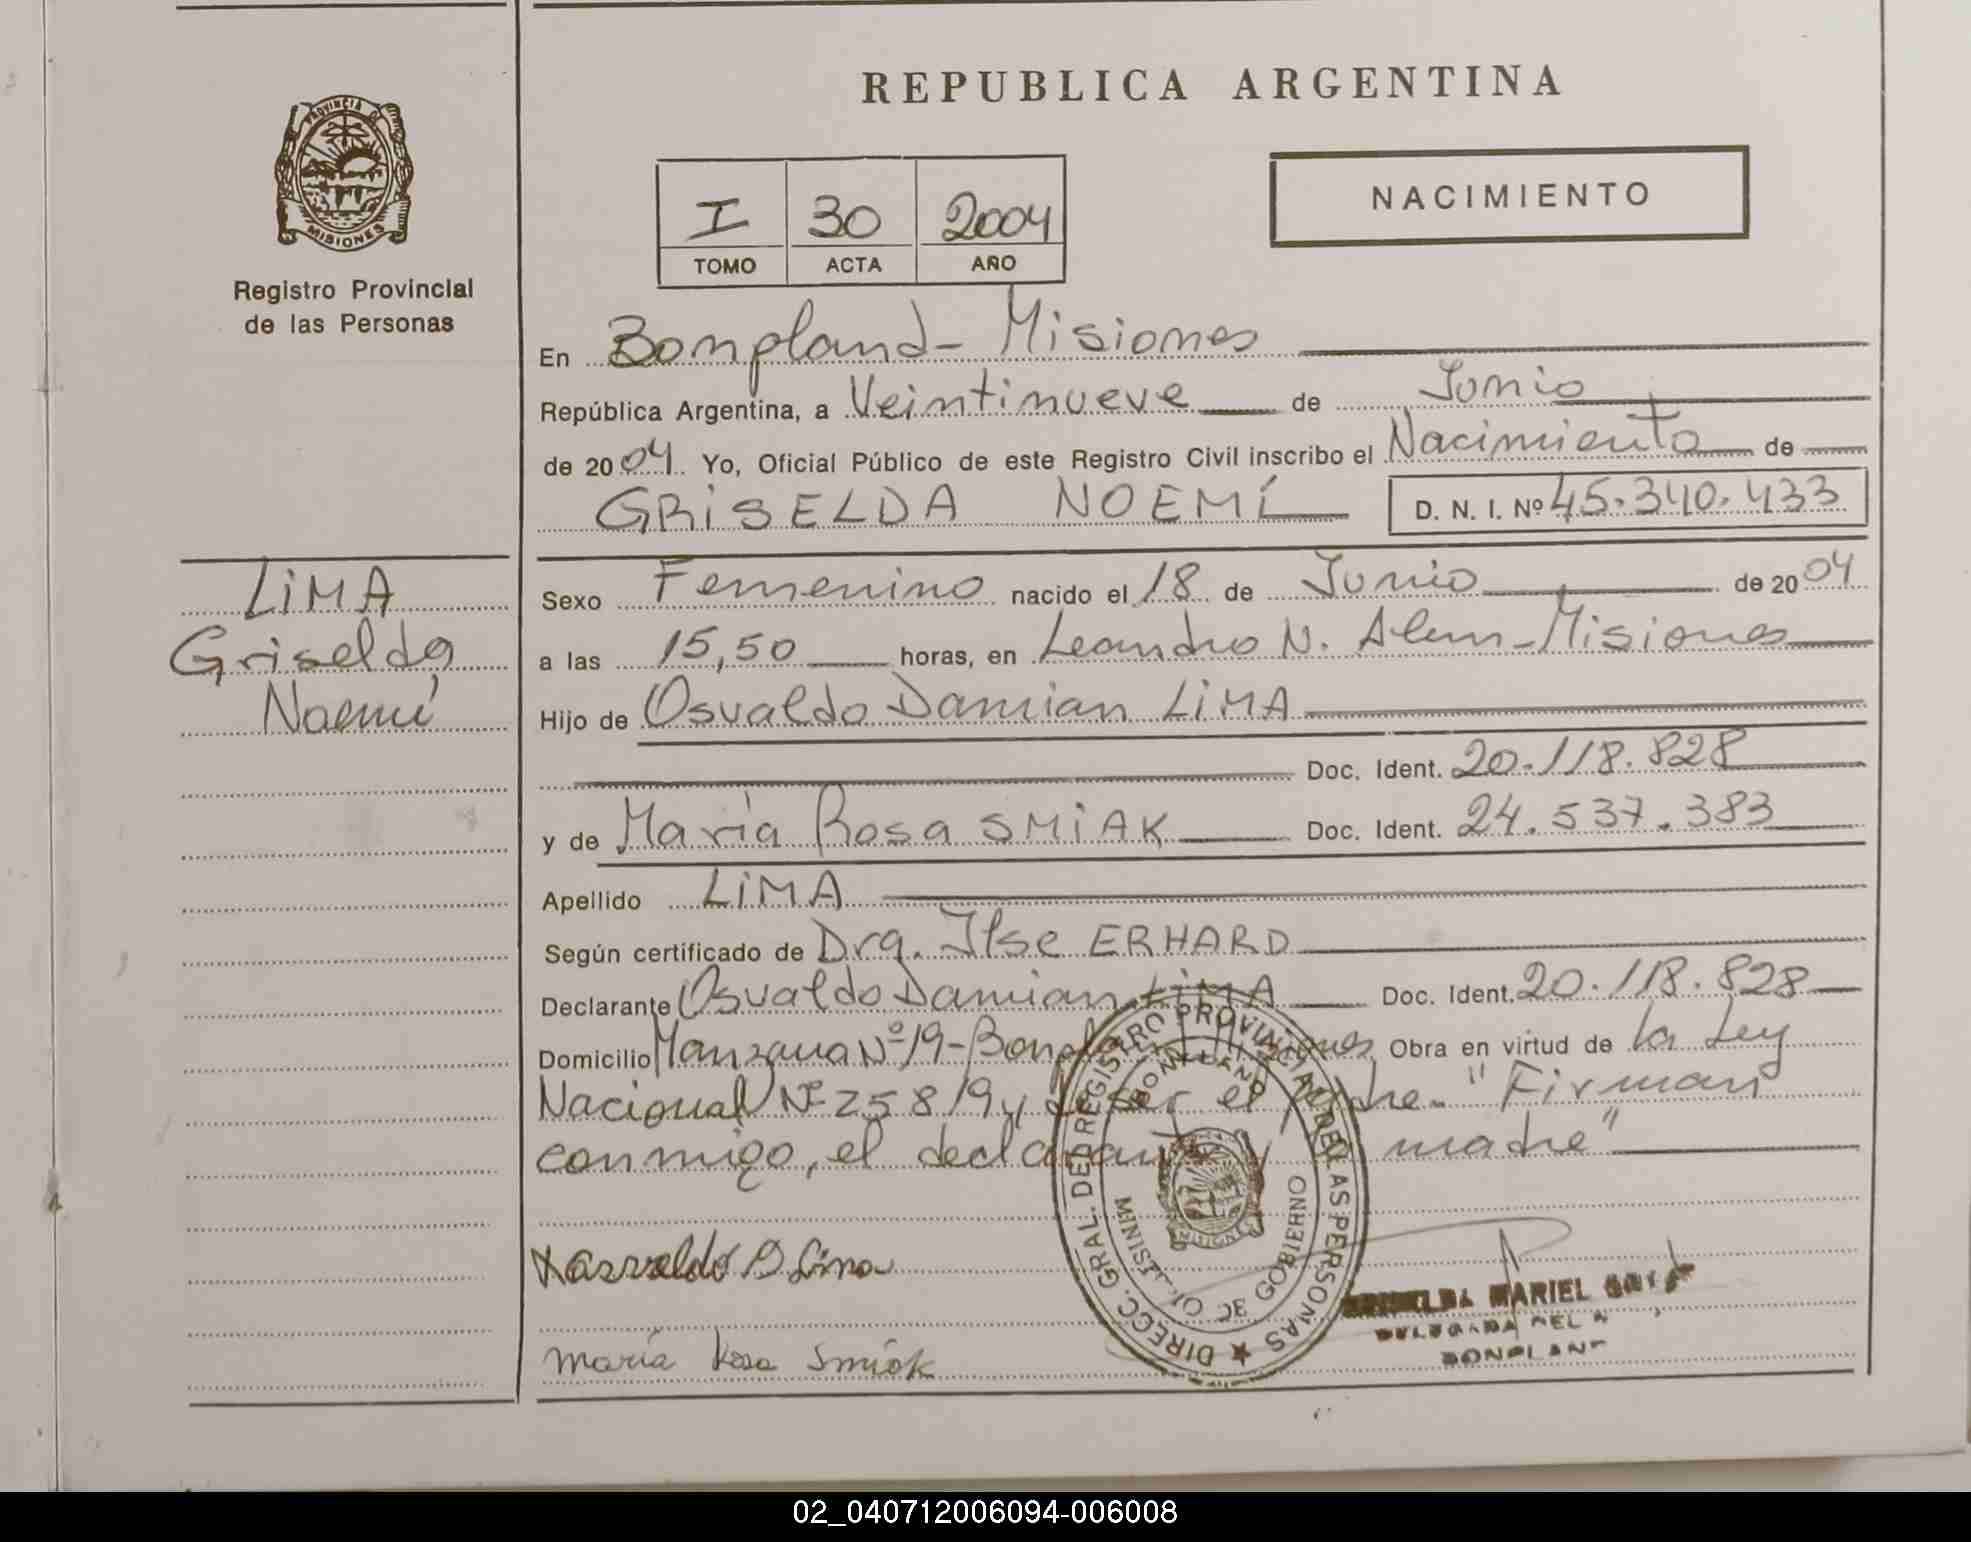 REPUBLICA ARGENTINA
PROVINCIA DE
MISIONES
Registro Provincial
de las Personas
I 30 2004
TOMO ACTA AÑO
NACIMIENTO
En Bonpland - Misiones
República Argentina, a Veintinueve de Junio
de 2004 Yo, Oficial Público de este Registro Civil inscribo el Nacimiento de
GRISELDA NOEMÍ D. N. I. Nº 45.340.433
LIMA
Griselda
Noemí
Sexo Femenino nacido el 18 de Junio de 2004
a las 15,50 horas, en Leandro N. Alem - Misiones
Hijo de Osvaldo Damian LIMA
Doc. Ident. 20.118.828
y de María Rosa SMIAK Doc. Ident. 24.537.383
Apellido LIMA
Según certificado de Dra. Ilse ERHARD
Declarante Osvaldo Damian LIMA Doc. Ident. 20.118.828
Domicilio Manzana Nº 19 - Bonpland Misiones Obra en virtud de la Ley
Nacional Nº 258/9 y ser el padre. "Firman
conmigo, el declarante y madre"
DIRECC. GRAL. DEL REGISTRO PROVINCIAL DE LAS PERSONAS
BONPLAND
MINISTERIO DE GOBIERNO
Osvaldo D Lima
MARIEL
DELEGADA DEL
BONPLAND
María Rosa Smiak
02_040712006094-006008